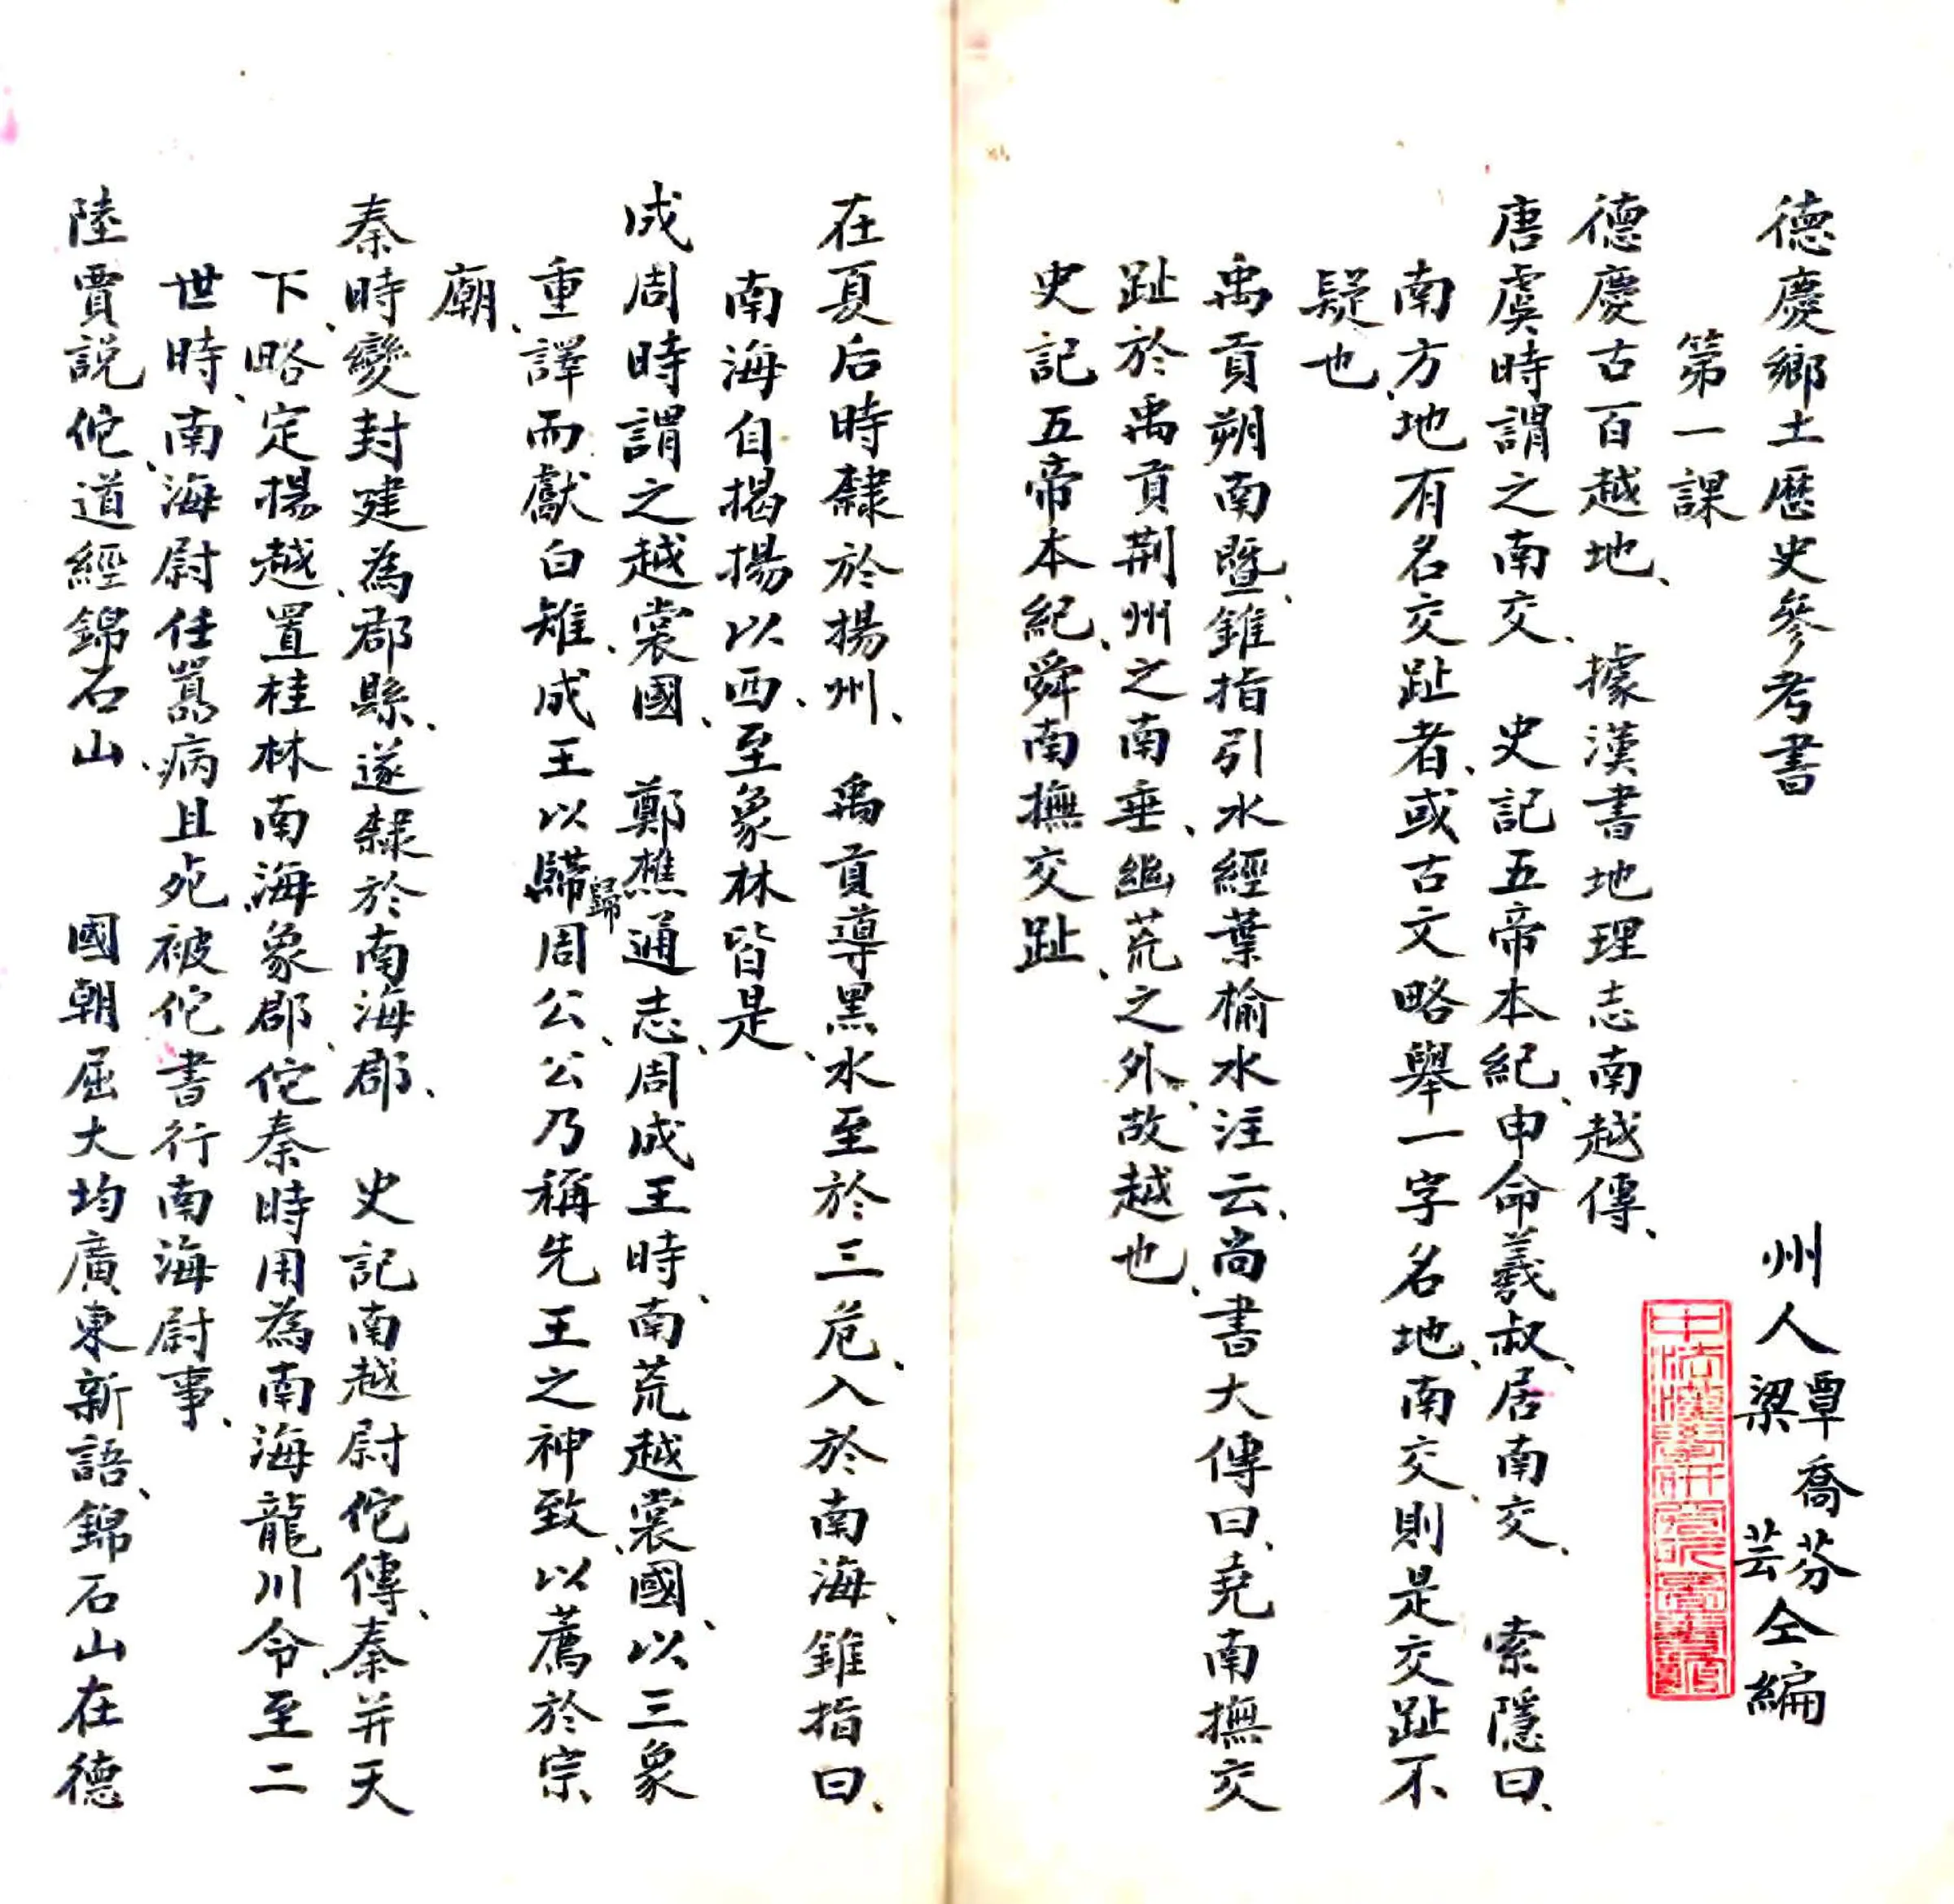 德慶鄉土歷史參考書
州人覃喬芬梁芸仝編
第一課
德慶古百越地、據漢書地理志南越傳、
唐虞時謂之南交、史記五帝本紀、申命羲叔、居南交、索隱曰、
南方、地有名交趾者、或古文略舉一字名地、南交、則是交趾不
疑也、
禹貢朔南暨、錐指引水經葉榆水注云、尚書大傳曰、堯南撫交
趾於禹貢荆州之南垂、幽荒之外、故越也、
史記五帝本紀、舜南撫交趾、
在夏后時隸於揚州、禹貢導黑水至於三危、入於南海、錐指曰、
南海自揭揚以西、至象林皆是、
成周時謂之越裳國、鄭樵通志、周成王時、南荒越裳國、以三象
重譯而獻白雉、成王以歸周公、公乃稱先王之神致、以薦於宗
歸
廟、
秦時、變封建、為郡縣、遂隸於南海郡、史記南越尉佗傳、秦并天
下、略定揚越、置桂林南海、象郡、佗秦時用為南海龍川令、至二
世時、南海尉任嚣病且死、被佗書、行南海尉事、
陸賈說佗道經錦石山、國朝屈大均廣東新語、錦石山在德